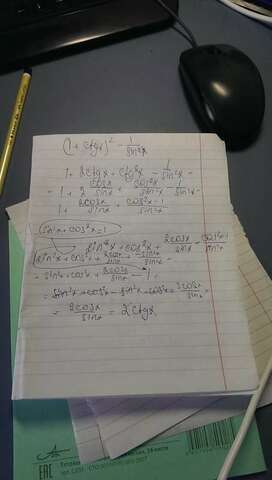 (1 + ctgx)² - 1/sin²x
1 + 2ctgx + ctg²x - 1/sin²x
= 1 + 2 cosx/sinx + cos²x/sin²x - 1/sin²x =
1 + 2cosx/sinx + cos²x-1/sin²x
sin²x + cos²x = 1
sin²x + cos²x + 2cosx/sinx + cos²x-1/sin²x
sin²x + cos²x + 2cosx/sinx - sin²x/sin²x =
= sin²x + cos²x + 2cosx/sinx - 1 =
= sin²x + cos²x - sin²x - cos²x + 2cosx/sinx =
= 2cosx/sinx = 2ctgx
EAC